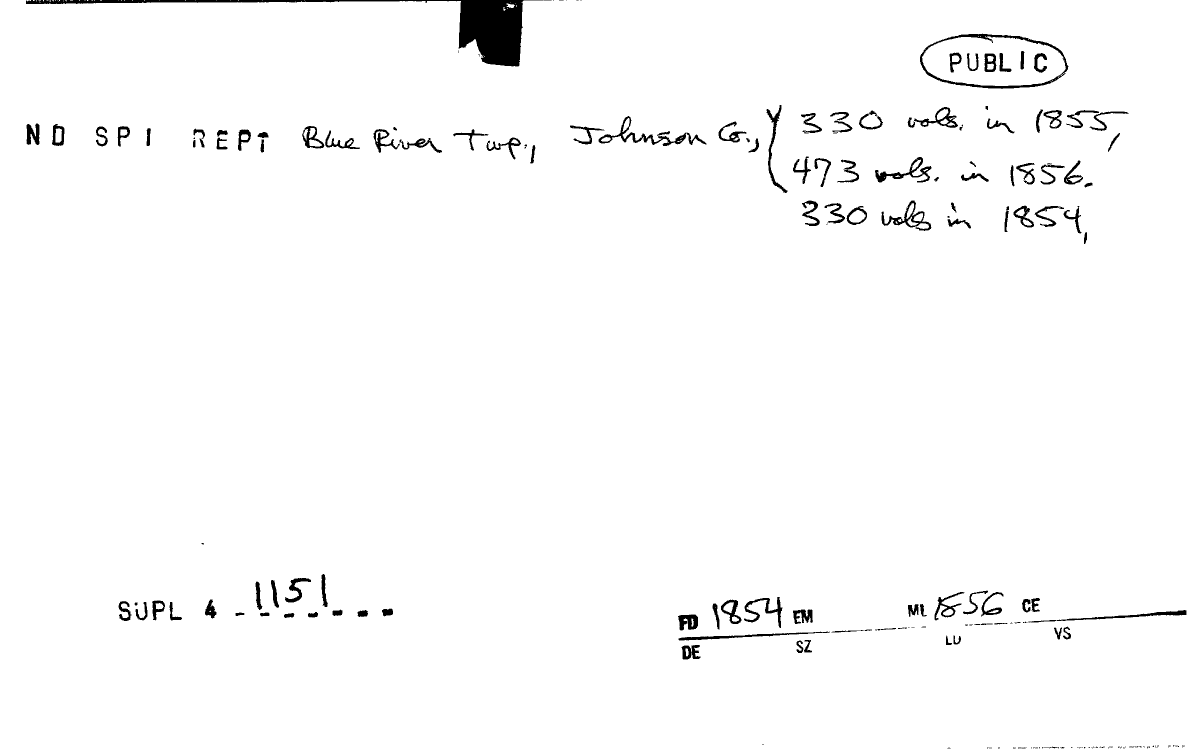 PUBLIC
ND SPI REPT Blue River Twp., Johnson Co., 330 vols. in 1855,
473 vols. in 1856.
330 vols in 1854,
SUPL 4 - 1151
FD 1854 EM ML 1856 CE
DE SZ LU VS